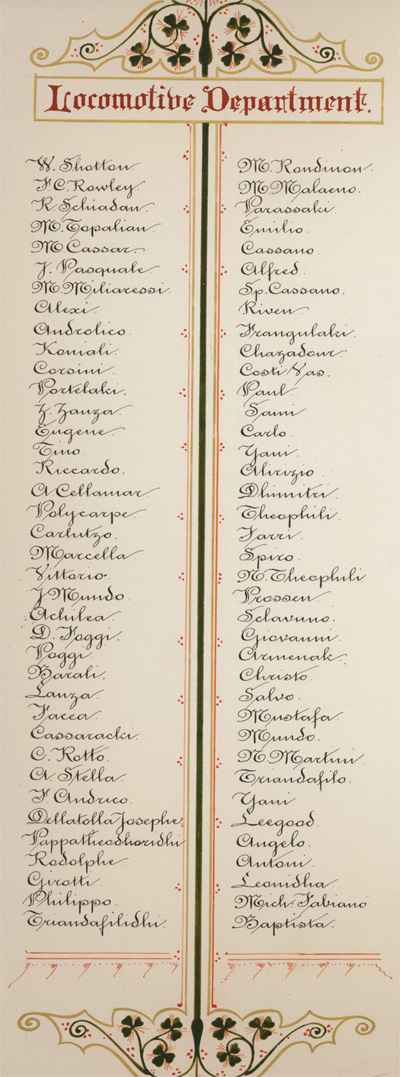 Locomotive Department.
W. Shotton.
F. C. Rowley.
R. Schiadan.
M. Topalian.
M. Cassar.
J. Pasquale.
M. Miliaressi.
Alexi.
Androlico.
Koniali.
Corsini.
Portelaki.
Z. Zauza.
Eugene.
Tino.
Riccardo.
A. Cellamar.
Polycarpe.
Carlutzo.
Marcella.
Vittorio.
J. Mundo.
Achilea.
D. Foggi.
Poggi.
Barali.
Lanza.
Facea.
Cassaracki.
C. Rotto.
A. Stella.
F. Andrico.
Dellatolla Josephe.
Pappatheodhoridhi.
Rodolphe.
Girotti.
Philippo.
Triandafilidhi.
M. Rondinon.
M. Malaeno.
Parassaki.
Emilio.
Cassano.
Alfred.
Sp. Cassano.
Riven.
Frangulaki.
Chazadour.
Costi Vas.
Paul.
Sami.
Carlo.
Yani.
Alirizio.
Dhimitri.
Theophili.
Farri.
Spiro.
N. Theophili.
Prossen.
Sclavuno.
Giovanni.
Armenak.
Christo.
Salvo.
Mustafa.
Mundo.
N. Martini.
Triandafilo.
Yani.
Leegood.
Angelo.
Antoni.
Leonidha.
Mich: Fabiano
Baptista.